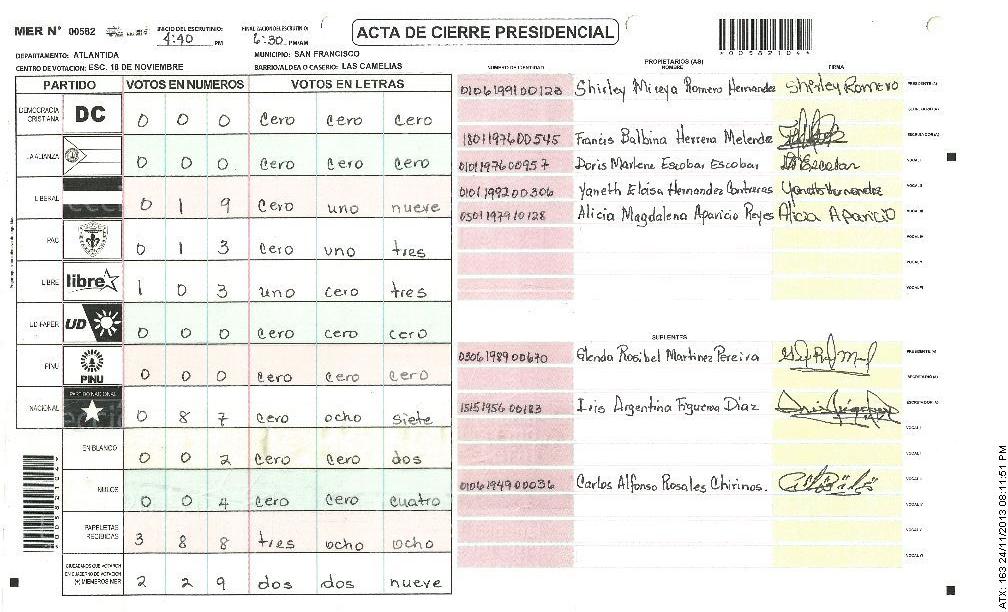 MER N° 00582 INICIO DEL ESCRUTINIO: 4:40 PM FINALIZACION DEL ESCRUTINIO: 6:30 PM/AM ACTA DE CIERRE PRESIDENCIAL
DEPARTAMENTO: ATLANTIDA MUNICIPIO: SAN FRANCISCO
CENTRO DE VOTACION: ESC. 18 DE NOVIEMBRE BARRIO/ALDEA O CASERIO: LAS CAMELIAS
PARTIDO VOTOS EN NUMEROS VOTOS EN LETRAS
DEMOCRACIA CRISTIANA DC 0 0 0 cero cero cero
LA ALIANZA 0 0 0 cero cero cero
LIBERAL 0 1 9 cero uno nueve
PAC 0 1 3 cero uno tres
LIBRE libre 1 0 3 uno cero tres
UD FAPER UD 0 0 0 cero cero cero
PINU PINU 0 0 0 cero cero cero
NACIONAL PARTIDO NACIONAL 0 8 7 cero ocho siete
EN BLANCO 0 0 2 cero cero dos
NULOS 0 0 4 cero cero cuatro
PAPELETAS RECIBIDAS 3 8 8 tres ocho ocho
CIUDADANOS QUE VOTARON EN CUADERNO DE VOTACION (+) MIEMBROS MER 2 2 9 dos dos nueve
PROPIETARIOS (AS)
NUMERO DE IDENTIDAD NOMBRE FIRMA
0106199100123 Shirley Mireya Romero Hernandez Shirley Romero PRESIDENTE (A)
SECRETARIO (A)
1801197600545 Francis Balbina Herrera Melendez ESCRUTADOR (A)
0101197600957 Doris Marlene Escobar Escobar D Escobar VOCAL I
0101199200306 Yaneth Eloisa Hernandez Contreras Yaneth Hernandez VOCAL II
0501197910128 Alicia Magdalena Aparicio Reyes Alicia Aparicio VOCAL III
VOCAL IV
VOCAL V
VOCAL VI
SUPLENTES
0306198900670 Glenda Rosibel Martinez Pereira PRESIDENTE (A)
SECRETARIO (A)
1515195600183 Iris Argentina Figueroa Diaz ESCRUTADOR (A)
VOCAL I
0106194900036 Carlos Alfonso Rosales Chirinos.
ATX: 163 24/11/2013 08:11:51 PM